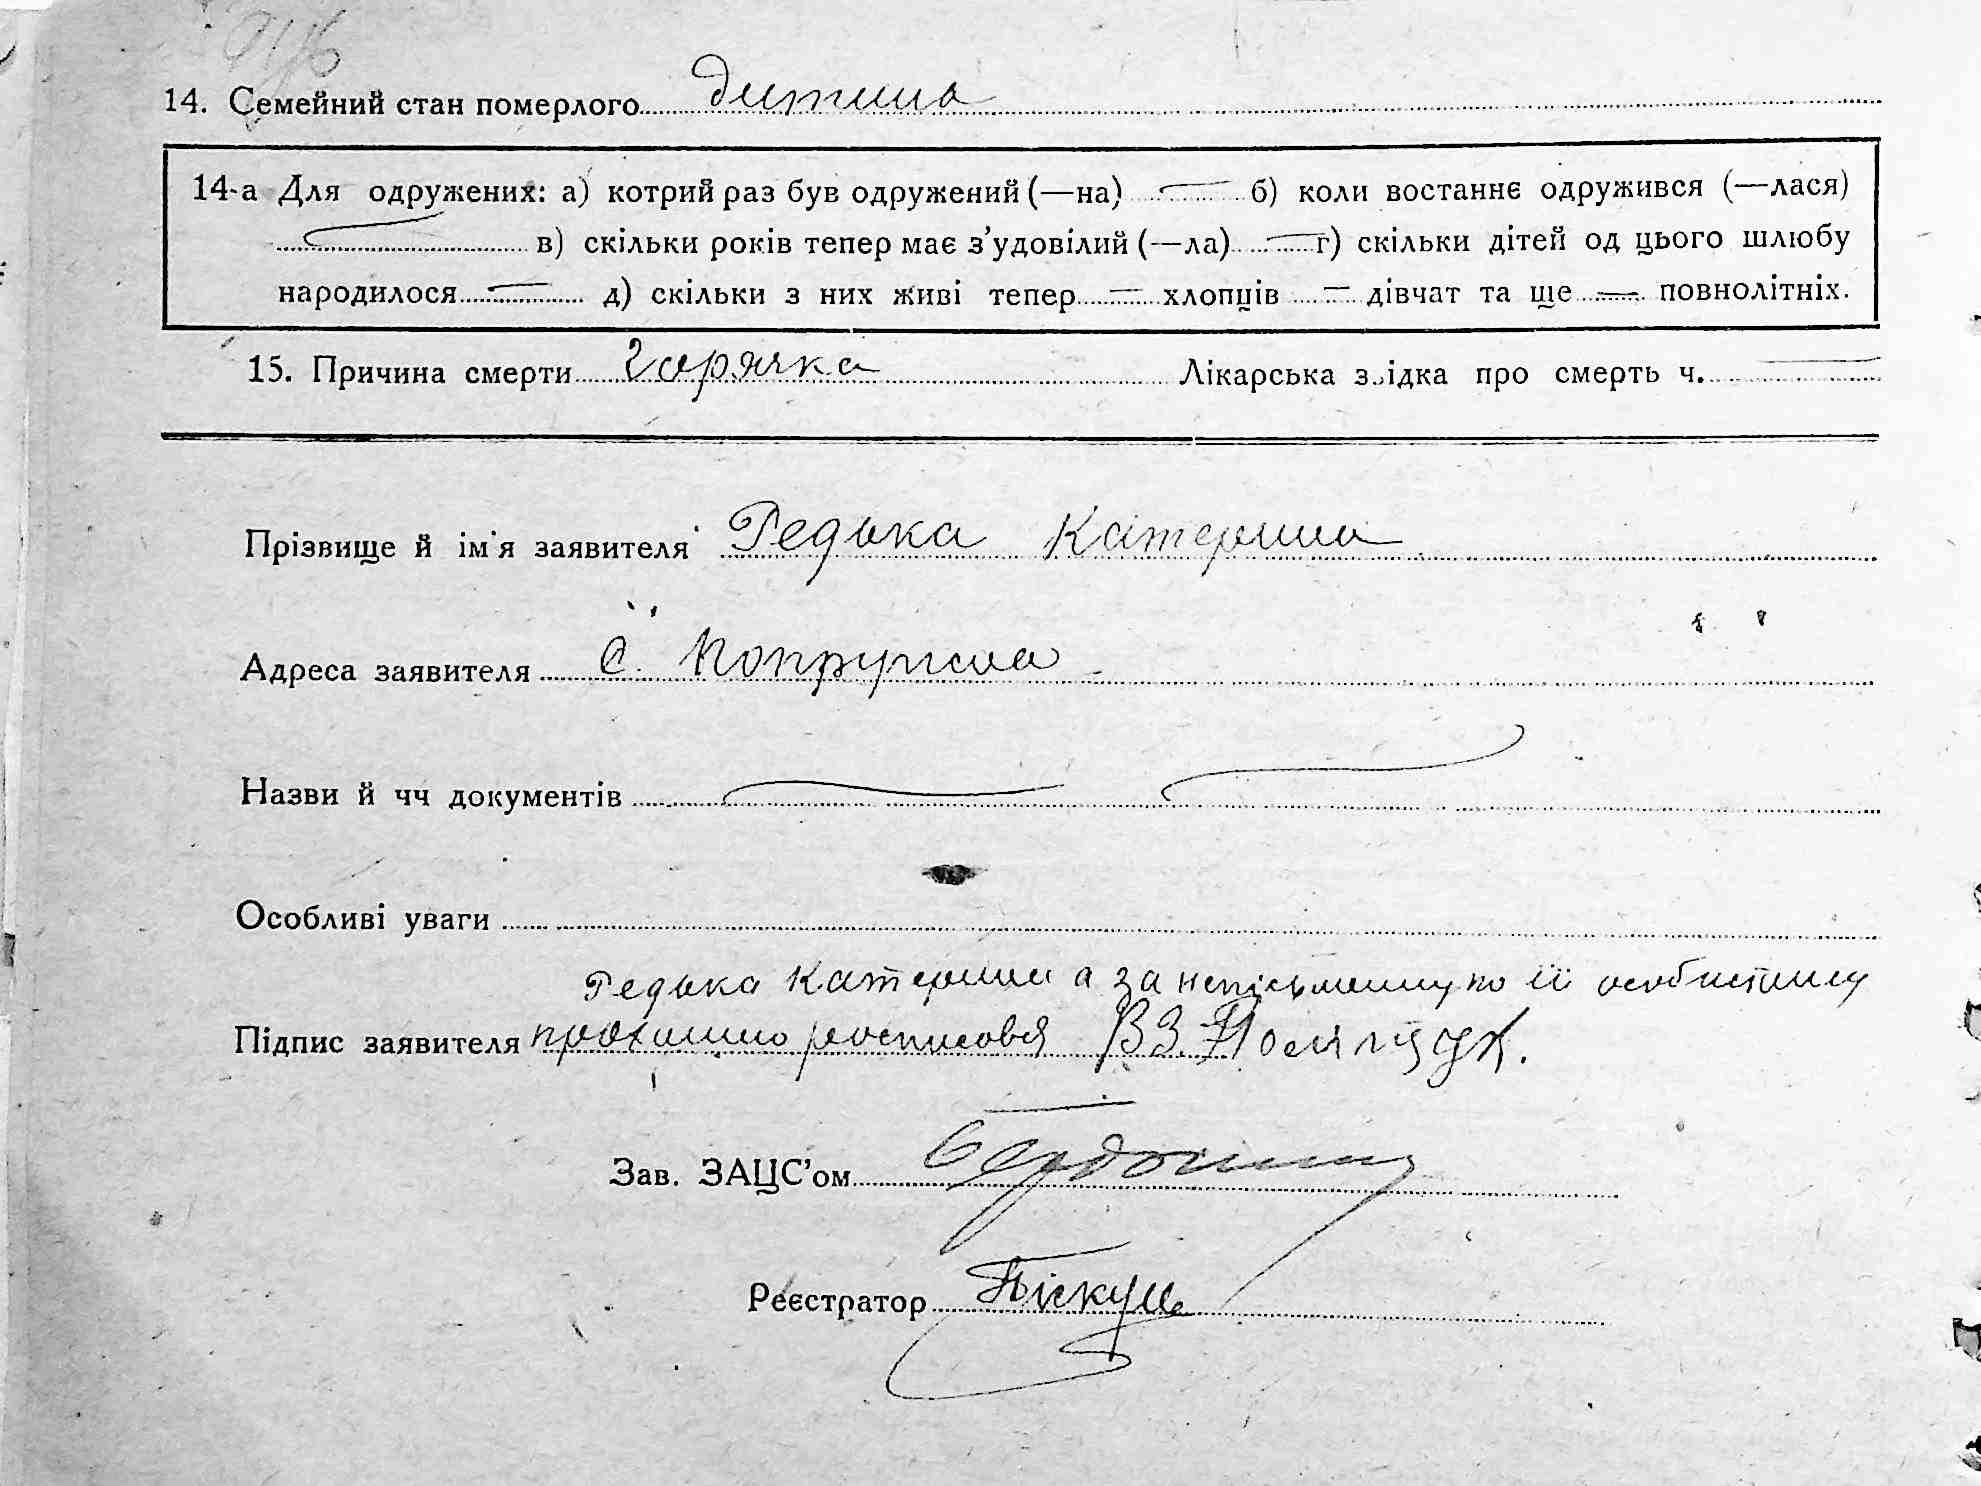 14. Семейний стан померлого дитина
14-а Для одружених: а) котрий раз був одружений (—на) — б) коли востаннє одружився (—лася)
— в) скільки років тепер має з’удовілий (—ла) — г) скільки дітей од цього шлюбу
народилося — д) скільки з них живі тепер — хлопців — дівчат та ще — повнолітніх.
15. Причина смерти горячка Лікарська звідка про смерть ч. —
Прізвище й ім’я заявителя Редька Катерина
Адреса заявителя С. Попружна
Назви й чч документів —
Особливі уваги
Редька Катерина а за непісьменну по її особистому
Підпис заявителя проханню росписовся ВЗ.
Зав. ЗАЦС’ом
Реєстратор Піскун